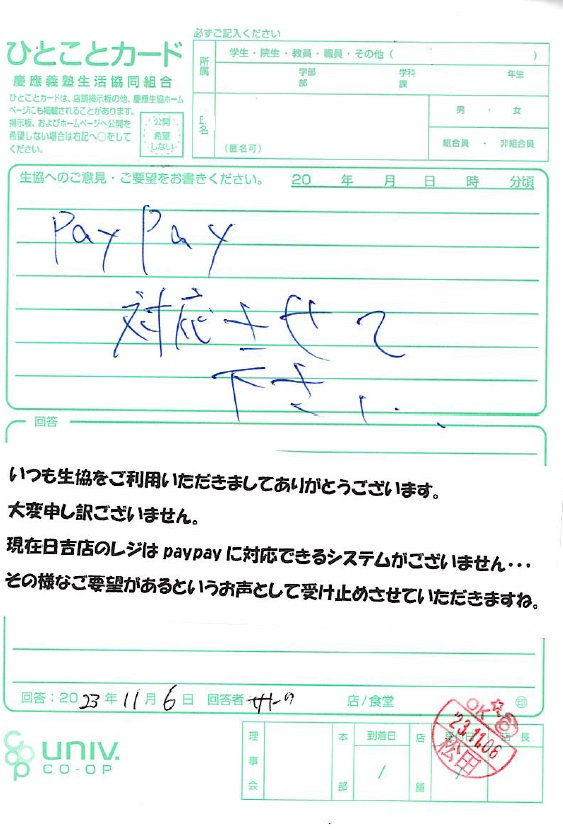 ひとことカード
慶應義塾生活協同組合
ひとことカードは、店舗掲示板の他、慶應生協ホーム
ページにも掲載されることがあります。
掲示板、およびホームページへ公開を
希望しない場合は右記へ○をして
ください。
公開
希望
しない
必ずご記入ください
所属
学生・院生・教員・職員・その他（　　）
学部 学科 年生
部 課
氏名
（匿名可）
男 ・ 女
組合員 ・ 非組合員
生協へのご意見・ご要望をお書きください。 20 年 月 日 時 分頃
PayPay
対応させて
下さい…
回答
いつも生協をご利用いただきましてありがとうございます。
大変申し訳ございません。
現在日吉店のレジは paypay に対応できるシステムがございません・・・
その様なご要望があるというお声として受け止めさせていただきますね。
回答：2023年11月6日 回答者 店/食堂 印
univ.
CO-OP
理事会
本部
到着日
/
店舗
店長
OK
23.11.06
松田